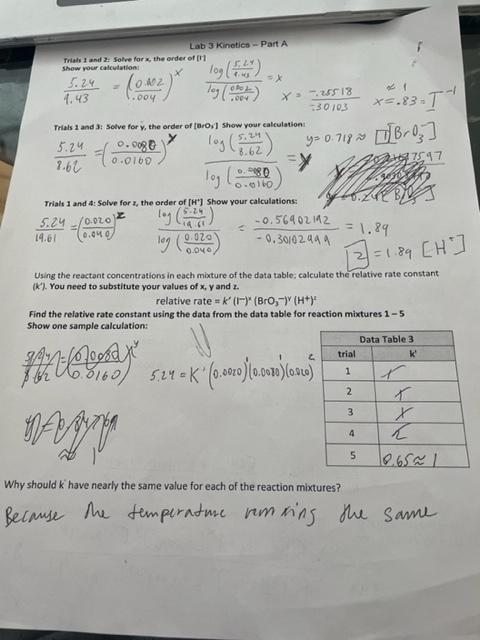 Lab 3 Kinetics – Part A
Trials 1 and 2: Solve for x, the order of [I⁻]
Show your calculation:
5.24 / 9.43 = (0.002 / .004)^x log(5.24 / 9.43) / log(0.002 / .004) = x x = -.25518 / -.30103 ≈ 1 x = .83 = I⁻¹
Trials 1 and 3: Solve for y, the order of [BrO₃⁻] Show your calculation:
5.24 / 8.62 = (0.0080 / 0.0160)^y log(5.24 / 8.62) / log(0.0080 / 0.0160) = y y = 0.718 ≈ 1 [BrO₃⁻]
Trials 1 and 4: Solve for z, the order of [H⁺] Show your calculations:
5.24 / 19.61 = (0.020 / 0.040)^z log(5.24 / 19.61) / log(0.020 / 0.040) = -0.56902192 / -0.30102999 = 1.89
2 = 1.89 [H⁺]
Using the reactant concentrations in each mixture of the data table; calculate the relative rate constant
(k'). You need to substitute your values of x, y and z.
relative rate = k' (I⁻)ˣ (BrO₃⁻)ʸ (H⁺)ᶻ
Find the relative rate constant using the data from the data table for reaction mixtures 1 – 5
Show one sample calculation:
5.24 = K' (0.0020)¹(0.0080)¹(0.020)²
Data Table 3
trial k'
1
2
3
4
5 0.65 ≈ 1
Why should k' have nearly the same value for each of the reaction mixtures?
Because the temperature the same